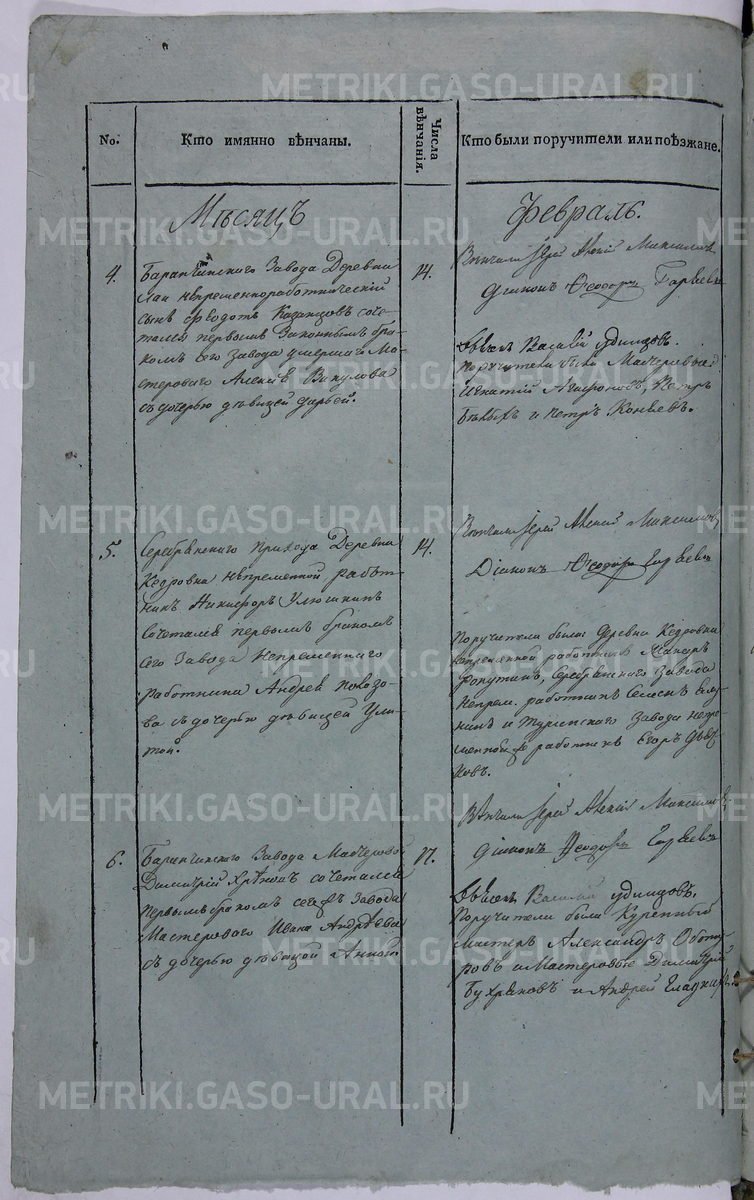 METRIKI.GASO-URAL.RU
No.
Кто имянно вѣнчаны.
Числа вѣнчанія.
Кто были поручители или поѣзжане.
Мѣсяцъ
Февраль.
4.
Баранчинскаго Завода Деревни
непременноработнической
сынъ Федотъ Казанцовъ соче-
тался первымъ Законнымъ бра-
комъ сего Завода умершаго Ма-
стероваго Алексія Викулова
съ дочерью дѣвицей Дарьей.
14.
Венчали Іерей Алексій Максимовъ
Діаконъ Феодоръ
Василій Удимцовъ.
Поручители были Мастеровые:
Игнатій Петръ
и Петръ Коневъ.
5.
Серебрянскаго прихода Деревни
Кедровки непременной работ-
никъ Никифоръ Улюшкинъ
сочетался первымъ бракомъ
сего Завода Непременнаго
работника Андрея
съ дочерью дѣвицей Ули-
той.
14.
Венчали Іерей Алексій Максимовъ
Діаконъ Феодоръ
Поручители были: Деревни Кедровки
непременной работникъ Макаръ
Серебрянскаго Завода
Непрем. работникъ
и Туринскаго Завода непре-
менной работникъ Егоръ
ковъ.
6.
Баранчинскаго Завода Мастеровой
Димитрій сочетался
первымъ бракомъ сегожъ завода
Мастероваго Ивана Андрѣева
съ дочерью дѣвицей Анной.
17.
Вѣнчали Іерей Алексій Максимовъ
Діаконъ Феодоръ
Василій Удимцовъ.
Поручители были Куренный
мастеръ Александръ
ровъ и Мастеровые Димитрій
Бухряковъ и Андрей